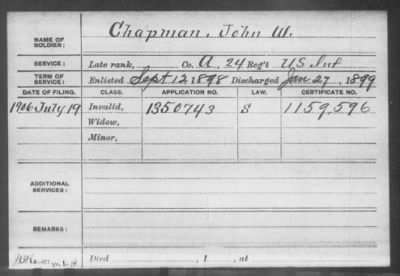 NAME OF SOLDIER: Chapman, John W.
SERVICE: Late rank, Co. A, 24 Reg't U S Inf
TERM OF SERVICE: Enlisted Sept 12, 1898 Discharged Jan 27, 1899
DATE OF FILING. CLASS. APPLICATION NO. LAW. CERTIFICATE NO.
1906 July 19 Invalid, 1350743 S 1159,596
Widow,
Minor,
ADDITIONAL SERVICES:
REMARKS:
Died , 1 , at